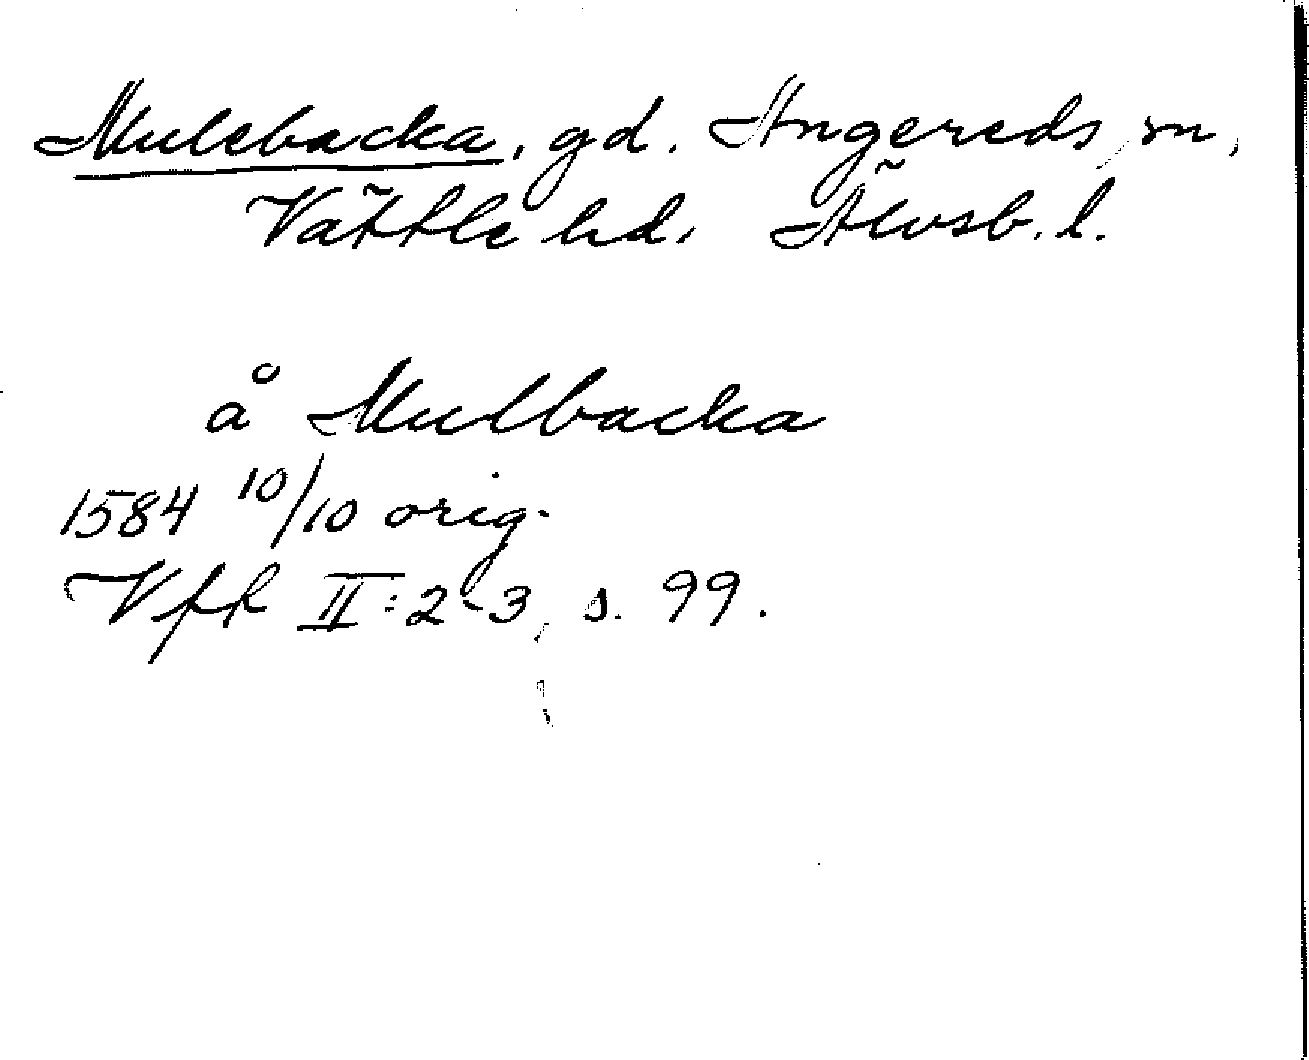 Mulebacka, gd. Angereds sn,
Vättle hd. Älvsb. l.
å Mulbacka
1584 10/10 orig.
Vfr II:2-3, s. 99.